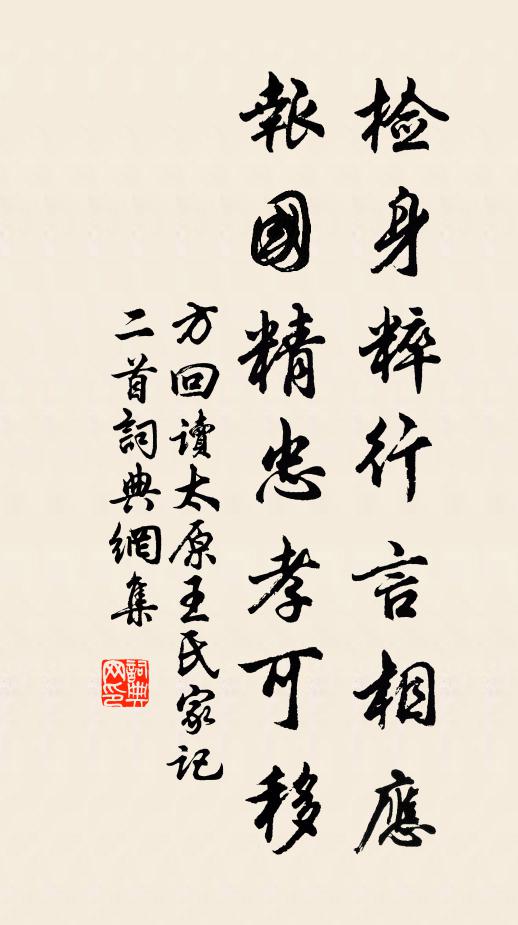 检身粹行言相應
報國精忠孝可移
方回读太原王氏家记
二首詞典網集
詞典网印